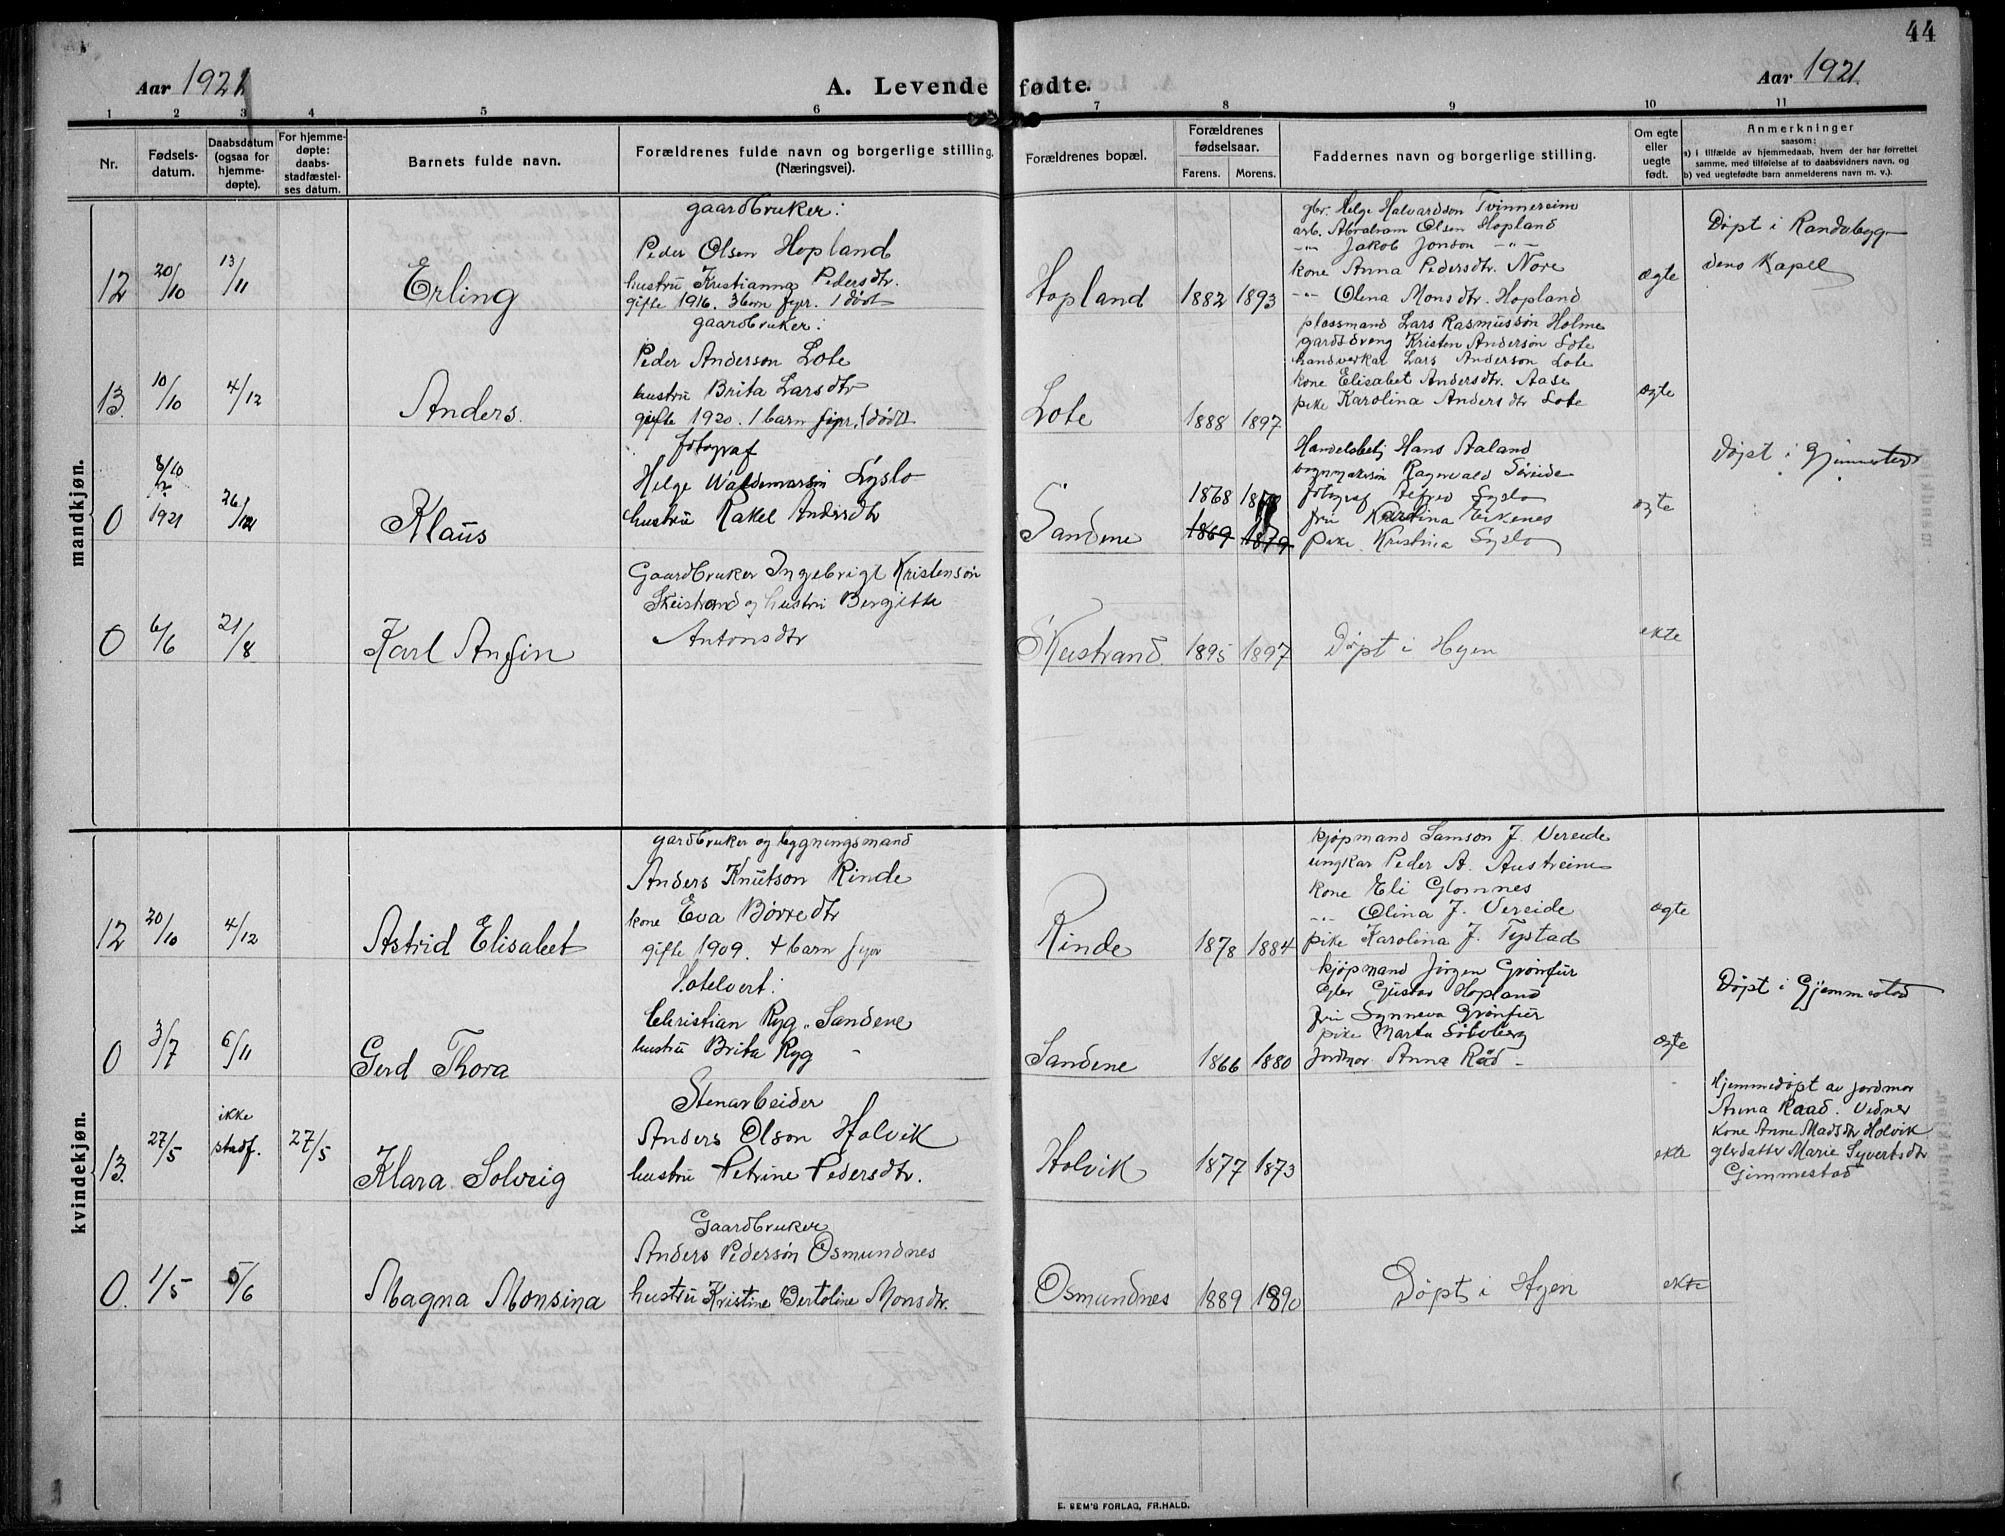 44
Aar 1921
A. Levende fødte.
Aar 1921.
1 2 3 4 5 6 7 8 9 10 11
Nr.
Fødsels-
datum.
Daabsdatum
(ogsaa for
hjemme-
døpte).
For hjemme-
døpte:
daabs-
stadfæstel-
ses datum.
Barnets fulde navn.
Forældrenes fulde navn og borgerlige stilling.
(Næringsvei).
Forældrenes bopæl.
Forældrenes
fødselsaar.
Farens. Morens.
Faddernes navn og borgerlige stilling.
Om egte
eller
uegte
født.
Anmerkninger
saasom:
a) i tilfælde av hjemmedaab, hvem der har forrettet
samme, med tilføielse af to daabsvidners navn, og
b) ved uegtefødte barn anmelderens navn m. v.).
mandkjøn.
12 20/10 13/11 Erling
gaardbruker:
Peder Olsen Hopland
hustru Kristianna Pedersdtr.
gifte 1916. 3 barn fyr. 1 dødt
Hopland 1882 1893
gbr. Helge Halvardson Tvinnereim
arb. Abraham Olsen Hopland
-"- Jakob Jonson -"-
kone Anna Pedersdtr. Nore
-"- Olena Monsdtr. Hopland
ægte
Døpt i Randabygg-
dens Kapel
13. 10/10 4/12 Anders.
gaardbruker:
Peder Anderson Lote
hustru Brita Larsdtr
gifte 1920. 1 barn fyr. (dødt
Lote 1888 1897
plassmand Lars Rasmusson Holme
gardsdreng Kristen Anderson Lote
handverkar Lars Anderson Lote
kone Elisabet Andersdtr. Aase
pike Karolina Andersdtr Lote
ægte
0 8/10 1921 26/12 Klaus
fotograf
Helge Waldemarsen Syslo
hustru Rakel Andersdtr
Sandene 1868
1869 1879
Handelsbetj Hans Aaland
Ragnvald Søreide
fotograf Alfred Syslo
fru Karolina Eikenes
pike Kristina Syslo
ægte
Døpt i Gjemmestad
0 6/6 21/8 Karl Anfin
Gaardbruker Ingebrigt Kristensøn
Skeistrand og hustru Bergitte
Antonsdtr
Skeistrand. 1895 1897 Døpt i Hyen ekte
kvindekjøn.
12 20/10 4/12 Astrid Elisabet
gardbruker og bygningsmand
Anders Knutson Rinde
kone Eva Børredtr
gifte 1909. 4 barn fyr
Rinde 1878 1884
kjøpmand Samson J. Vereide
ungkar Peder A. Austreim
kone Eli Glomnes
-"- Olina J. Vereide
pike Karolina J. Tystad
ægte
0 3/7 6/11 Gerd Thora
Hotelvert:
Christian Ryg. Sandene
hustru Brita Ryg -
Sandene 1866 1880
kjøpmand Jørgen Grønfur
gbr Gustav Hopland
fru Synneva Grønfur
pike Marta Solvberg
Jordmor Anna Råd -
ægte
Døpt i Gjemmestad
13. 27/5 ikke
stadf. 27/5 Klara Solveig
Stenarbeider
Anders Olson Holvik
hustru Petrine Pedersdtr.
Holvik 1877 1873 ekte
Hjemmedøpt av jordmor
Anna Raad. Vidner
kone Anne Madsdtr Holvik
gbrdatter Marie Syvertsdtr
Gjemmestad
0. 1/5 5/6 Magna Monsina
Gaardbruker
Anders Pedersøn Osmundnes
hustru Kristine Bertoline Monsdtr.
Osmundnes 1889 1890 Døpt i Hyen ekte
E. SEM'S FORLAG, FR.HALD.